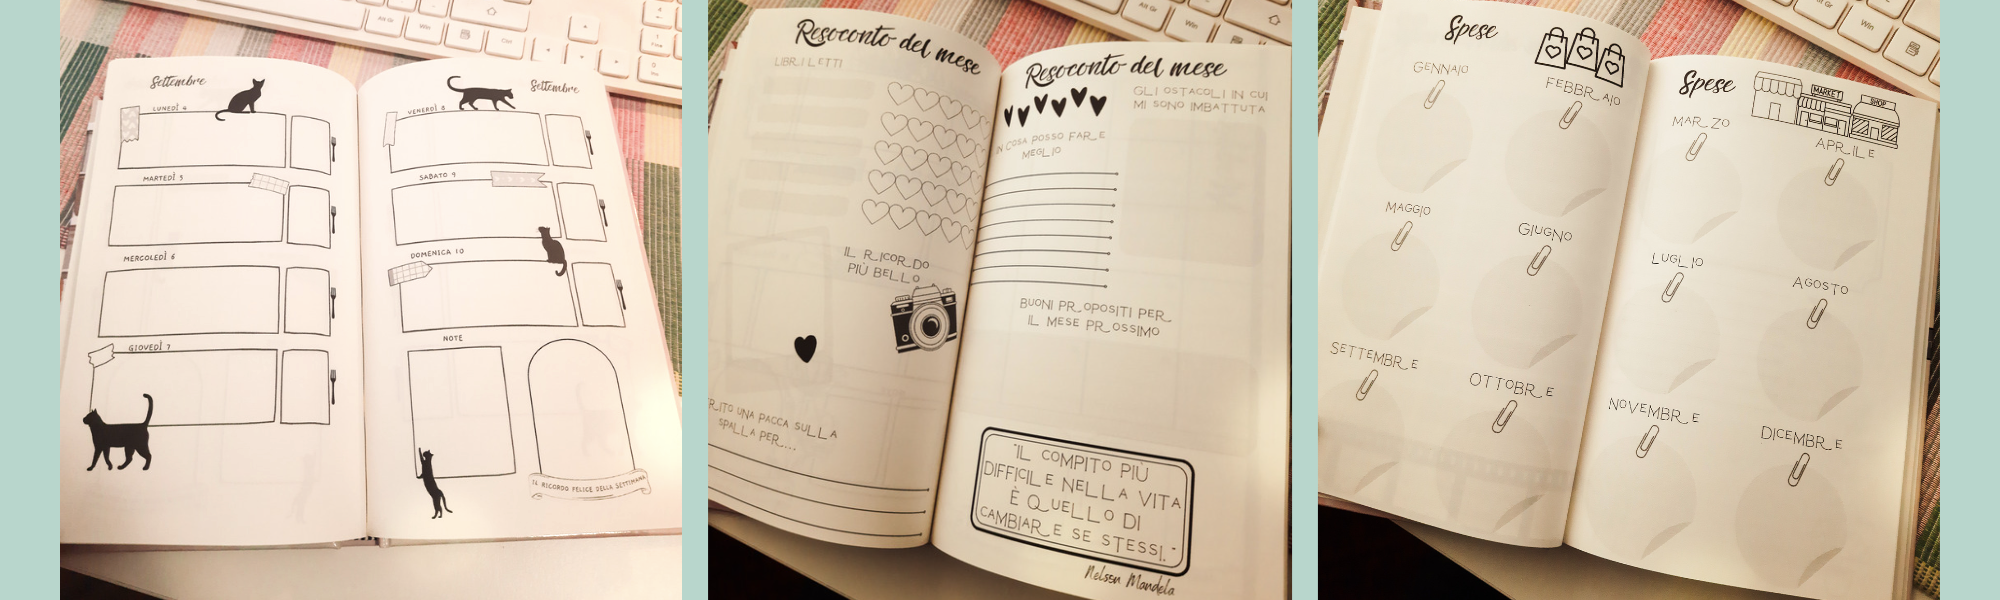 Settembre
LUNEDÌ 4
MARTEDÌ 5
MERCOLEDÌ 6
GIOVEDÌ 7
Settembre
VENERDÌ 8
SABATO 9
DOMENICA 10
NOTE
IL RICORDO FELICE DELLA SETTIMANA
Alt Gr
Win
Ctrl
Resoconto del mese
LIBRI LETTI
IL RICORDO
PIÙ BELLO
UNA PACCA SULLA
SPALLA PER....
Resoconto del mese
IN COSA POSSO FARE
MEGLIO
GLI OSTACOLI IN CUI
MI SONO IMBATTUTA
BUONI PROPOSITI PER
IL MESE PROSSIMO
"IL COMPITO PIÙ
DIFFICILE NELLA VITA
È QUELLO DI
CAMBIARE SE STESSI."
Nelson Mandela
Alt Gr
Win
Spese
GENNAIO
FEBBRAIO
MAGGIO
GIUGNO
SETTEMBRE
OTTOBRE
Spese
MARKET
SHOP
MARZO
APRILE
LUGLIO
AGOSTO
NOVEMBRE
DICEMBRE
Alt Gr
Win